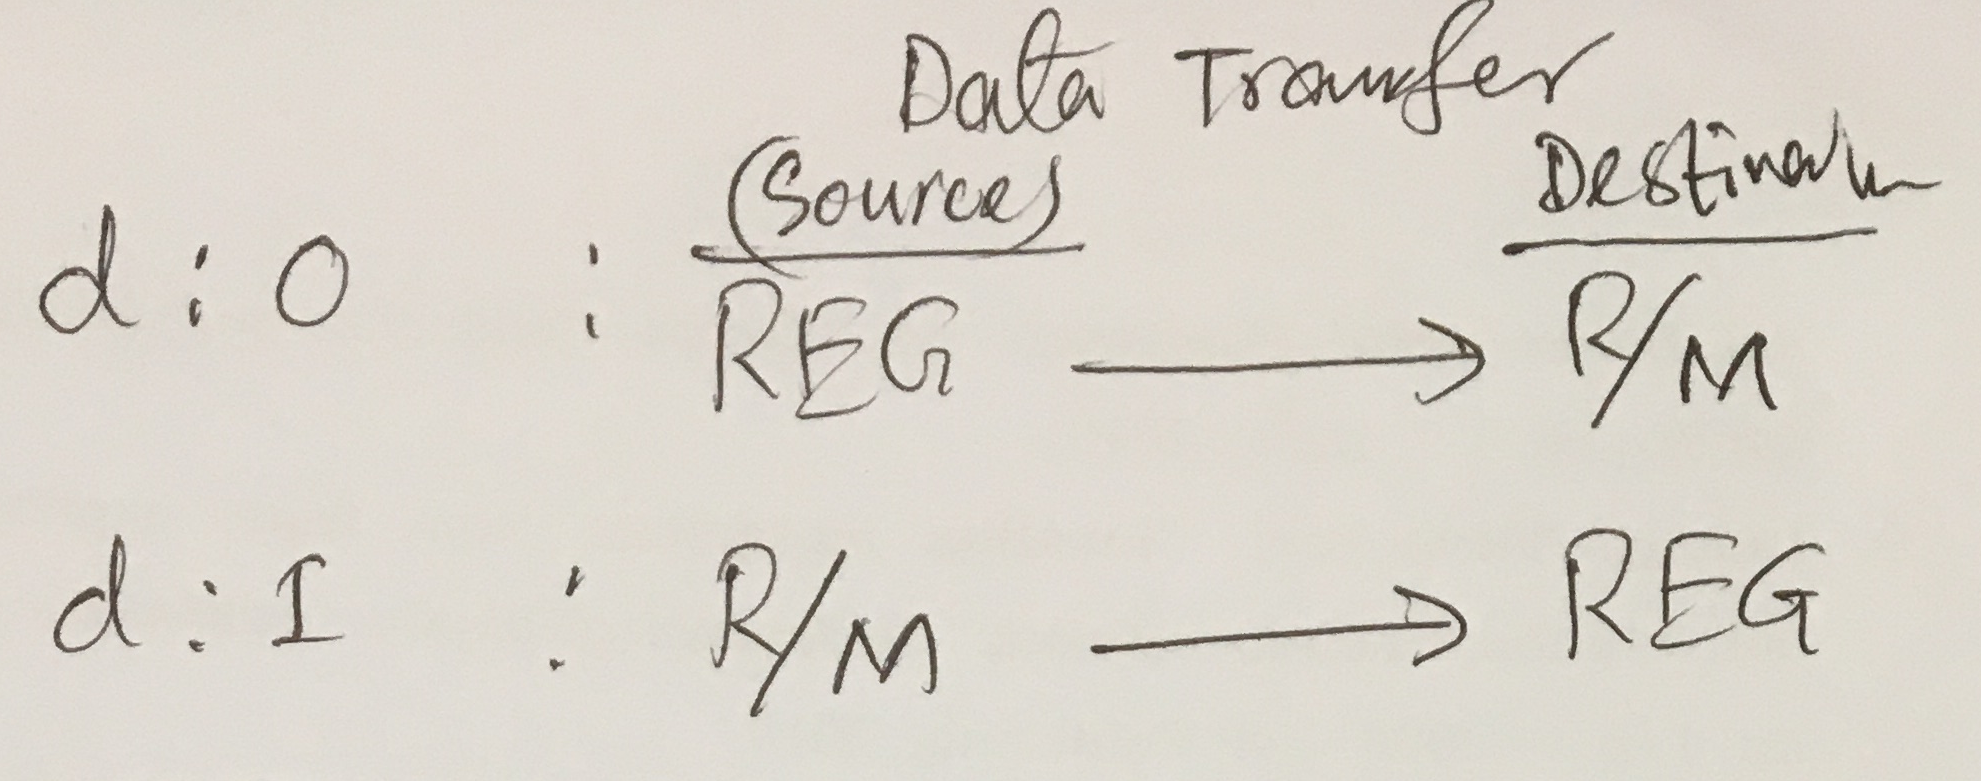 Data Transfer
(Sources) Destination
d : 0 : REG → R/M
d : 1 : R/M → REG